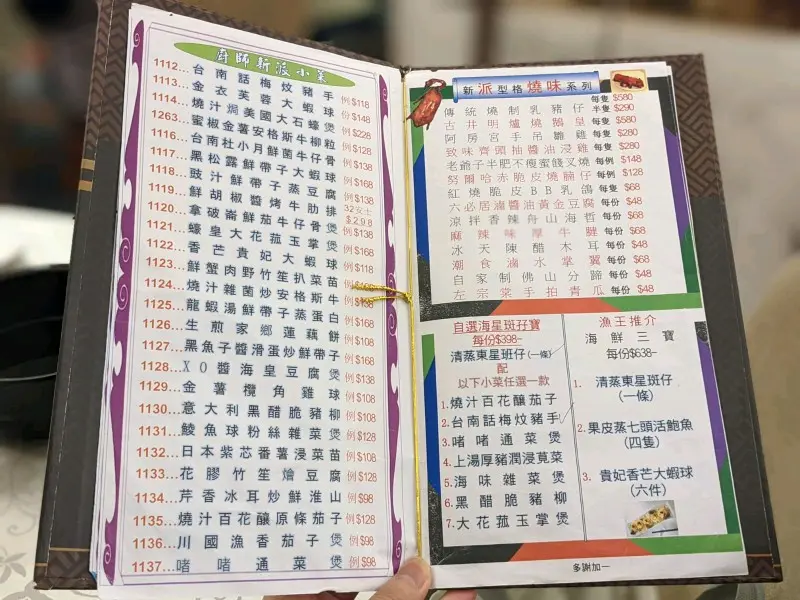 廚師新派小菜
1112...台南話梅炆豬手 例$118
1113...金衣芙蓉大蝦球 份$148
1114...燒汁焗美國大石蠔煲 例$228
1263...蜜椒金薯安格斯牛柳粒 例$128
1116...台南杜小月鮮菌牛仔骨 例$138
1117...黑松露鮮帶子大蝦球 例$168
1118...豉汁鮮帶子蒸豆腐 例$138
1119...鮮胡椒醬烤牛肋排 32安士 $298
1120...拿破崙鮮茄牛仔骨煲 例$138
1121...蠔皇大花菰玉掌煲 例$168
1122...香芒貴妃大蝦球 例$118
1123...鮮蟹肉野竹笙扒菜苗
1124...燒汁雜菌炒安格斯牛
1125...龍蝦湯鮮帶子蒸蛋白 例$168
1126...生煎家鄉蓮藕餅 例$108
1127...黑魚子醬滑蛋炒鮮帶子 例$168
1128...XO醬海皇豆腐煲 例$138
1129...金薯欖角雞球 例$108
1130...意大利黑醋脆豬柳 例$108
1131...鯪魚球粉絲雜菜煲 例$128
1132...日本紫芯番薯浸菜苗 例$108
1133...花膠竹笙燴豆腐 例$128
1134...芹香冰耳炒鮮淮山 例$98
1135...燒汁百花釀原條茄子 例$128
1136...川國漁香茄子煲 例$98
1137...啫啫通菜煲 例$98
新派型格燒味系列
傳統燒制乳豬仔 每隻$580 半隻$290
古井明爐燒鵝皇 每隻$580
阿房宮手吊雛雞 每隻$280
致味齊頭抽醬油浸雞 每隻$280
老爺子半肥不瘦蜜餞叉燒 每例$148
努爾哈赤脆皮燒腩仔 每例$128
紅燒脆皮BB乳鴿 每隻$68
六必居滷醬油黃金豆腐 每份$48
涼拌香辣舟山海哲 每份$68
麻辣味厚牛𦟌 每份$68
冰天陳醋木耳 每份$48
潮食滷水掌翼 每份$68
自家制佛山分蹄 每份$48
左宗棠手拍青瓜 每份$48
自選海星斑孖寶
每份$398-
清蒸東星班仔(一條)
配
以下小菜任選一款
1.燒汁百花釀茄子
2.台南話梅炆豬手
3.啫啫通菜煲
4.上湯厚豬潤浸莧菜
5.海味雜菜煲
6.黑醋脆豬柳
7.大花菰玉掌煲
漁王推介
海鮮三寶
每份$638-
1. 清蒸東星斑仔
(一條)
2. 果皮蒸七頭活鮑魚
(四隻)
3. 貴妃香芒大蝦球
(六件)
多謝加一